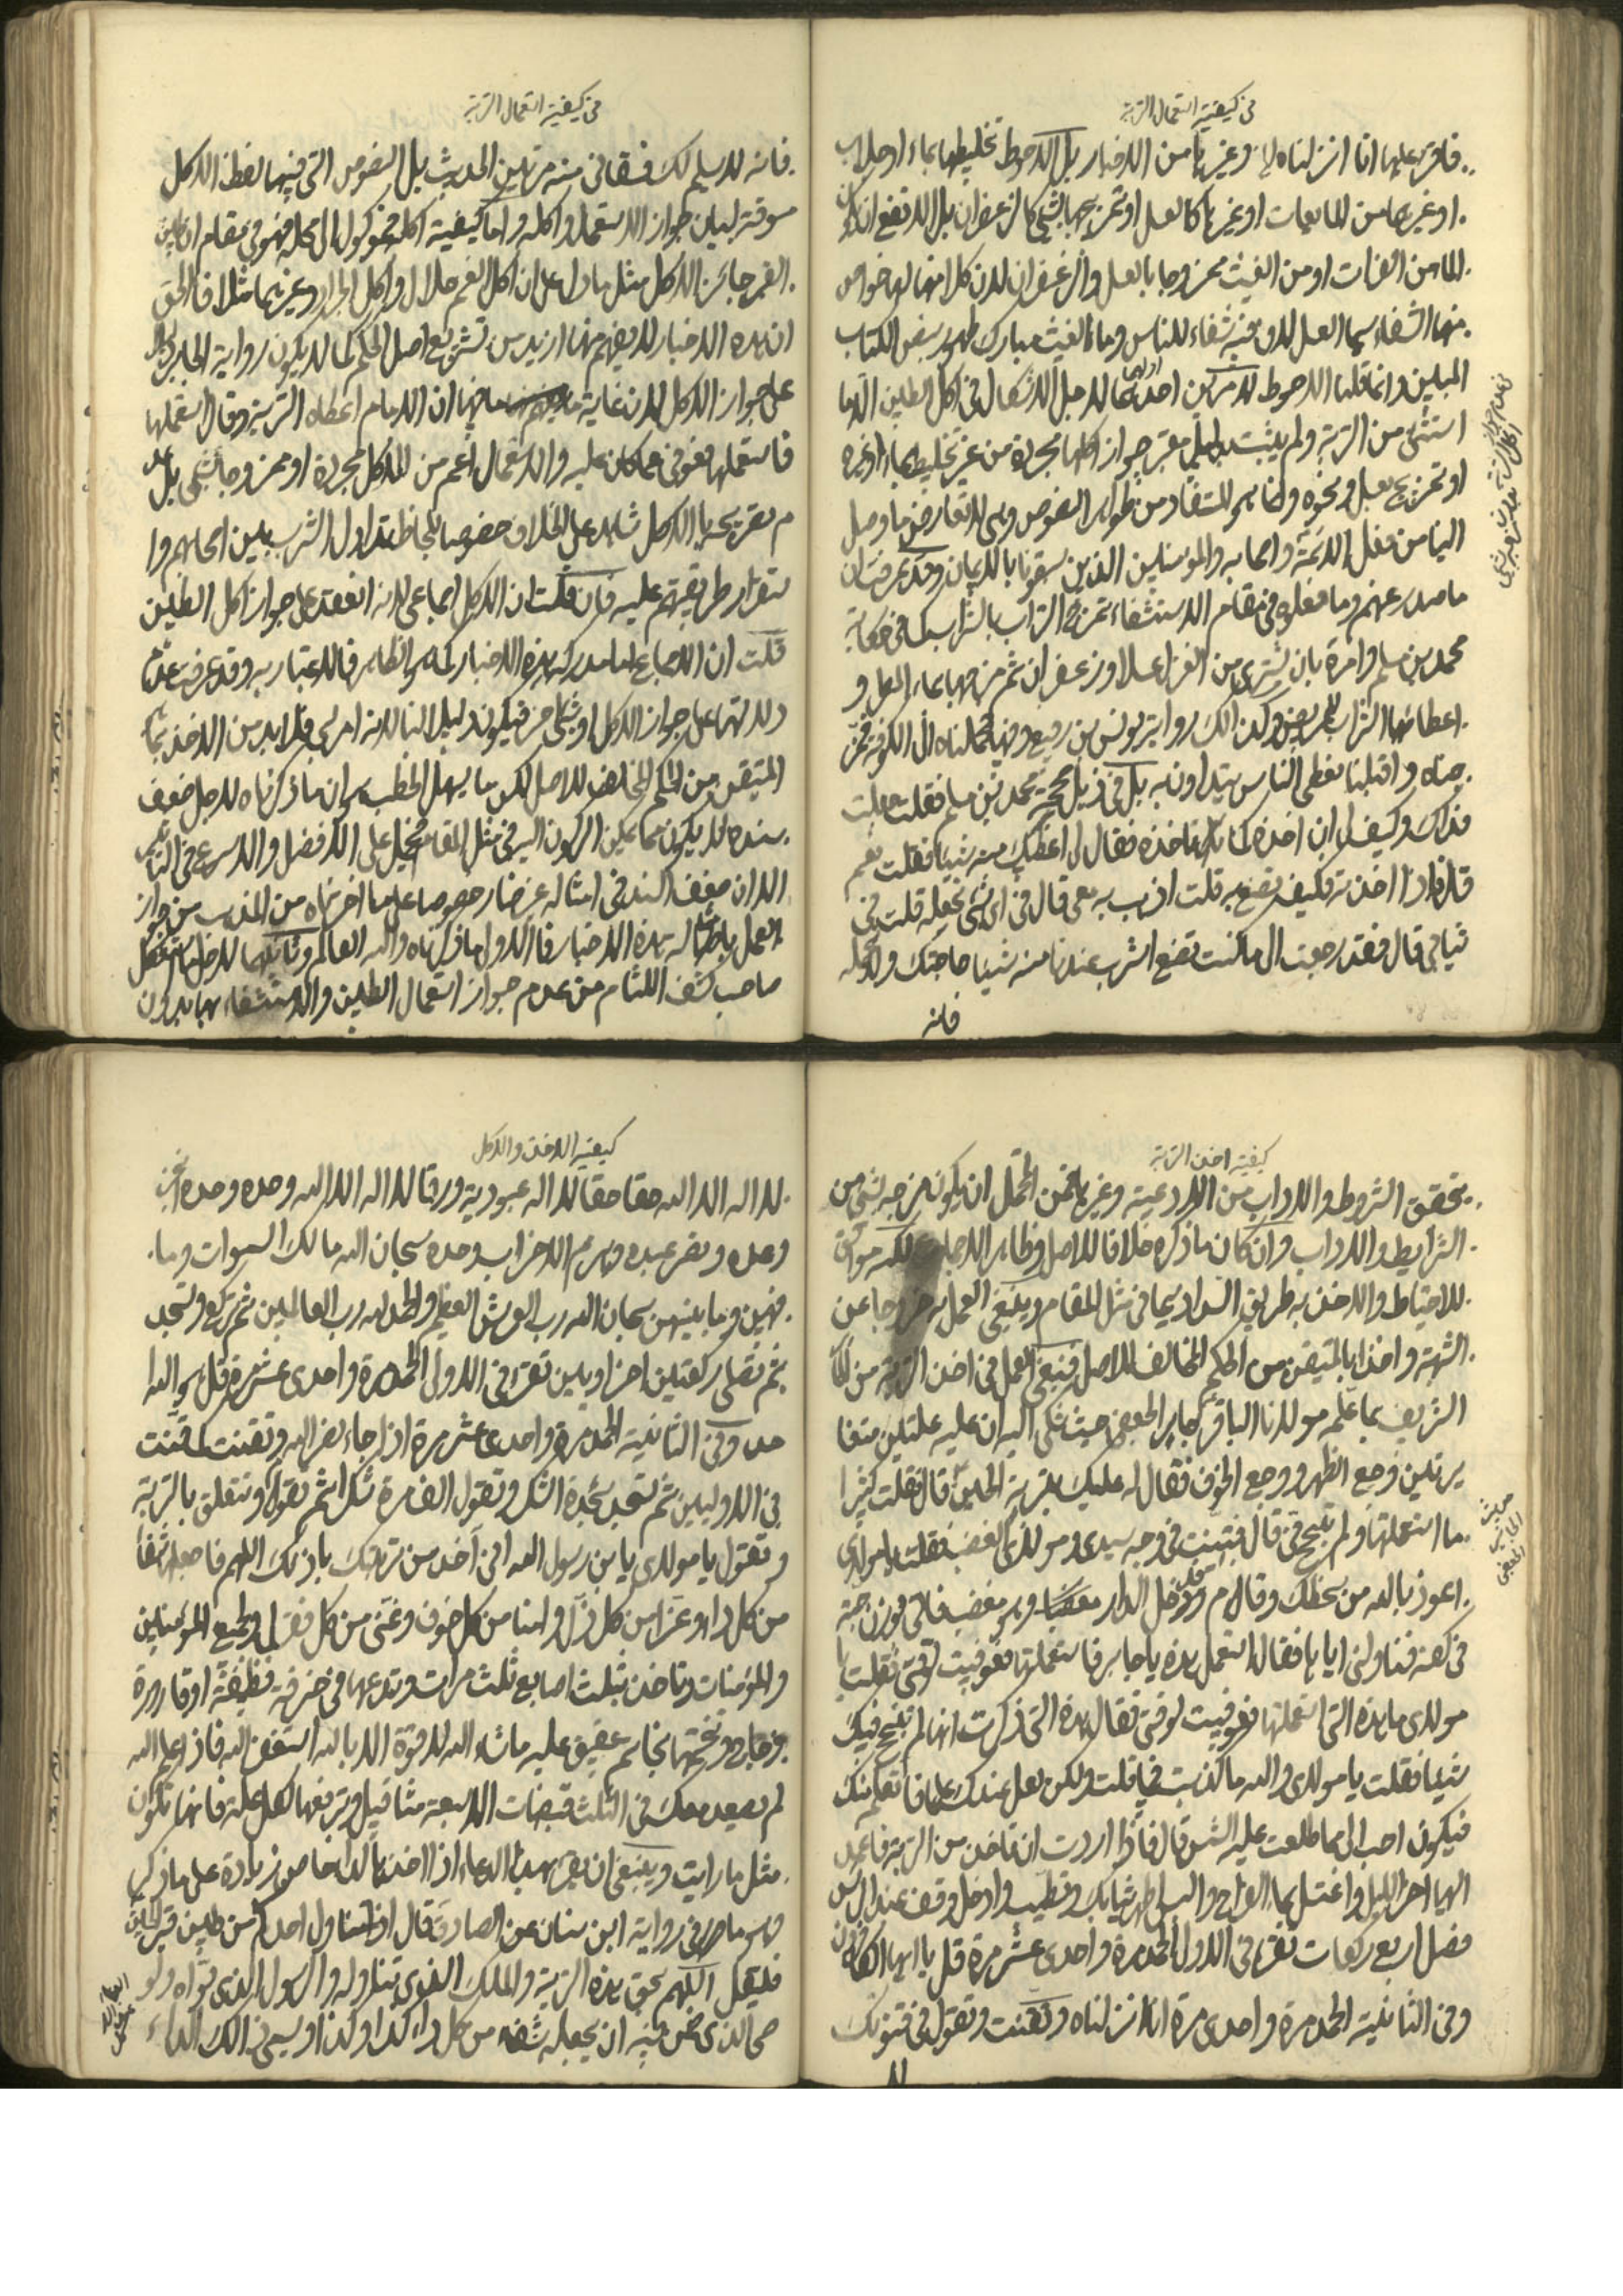 في كيفية استعمال التربة
فاقرء عليها انا انزلناه الخ وغيرها من الاخبار بل الاحوط تخليطها بماء او جلاب
او غيرهما من المايعات او غيرها كالعسل او تمزيجها بشئ كالزعفران بل الانفع ان
الماء من الفرات او من الغيث ممزوجا بالعسل والزعفران لان كلا منها لها خواص
منها الشفاء سيما العسل لان فيه شفاء للناس وماء الغيث مبارك طهور بنص الكتاب
المبين وانما قلنا الاحوط لاجل الاشكال في اكل الطين الا ما
استثنى من التربة ولم يثبت بدليل معتبر جواز اكلها مجردة من غير تخليطها بماء او غيره
او تمزيج بعسل ونحوه وانما هو المستفاد من ظواهر النصوص وهي لا تعارض ما وصل
الينا من فعل الائمة واصحابه والمؤمنين الذين سبقونا بالايمان وقد عرفت ان
ما صدر عنهم وما فعلوه في مقام الاستشفاء تمزيج التراب بالشراب كما في حكاية
محمد بن مسلم وامره بان يشتري من الغزل عسلا وزعفران ثم مزجها بماء العسل و
اعطائها التراب للمريض وكذلك رواية يونس بن رفيع وفيها فحملناه الى الكوفة فمز
جناه واقبلنا نعطى الناس يتداوون به بل في ذيل صحيحة محمد بن مسلم فقلت جعلت
فداك وكيف لي ان اخذه كما تاخذه فقال لي اعطيك منه شيئا فقلت نعم
قال فاذا اخذته فكيف تصنع به قلت اذهب به معي قال في اي شئ تجعله قلت في
ثيابي قال فقد رجعت الى ما كنت تصنع اشرب عندنا منه شيئا حاجتك ولا تحمله
فانه
في كيفية استعمال التربة
فانه لا يسلم لك فسقاني منه مرتين الحديث بل النصوص التي فيها لفظ الاكل
مسوقة لبيان جواز الاستعمال واكله واما كيفية اكله فموكول الى محله فهو في مقام ان طين
القبر جائز الاكل مثل ما دل على ان اكل الغنم حلال واكل الجراد وغيرهما مثلا فالحق
ان هذه الاخبار لا يفهم منها ازيد من تشريع اصل الحكم كما لا يكون رواية الجابر
على جواز الاكل لان غاية ما فيها ان الامام اعطاه التربة وقال استعملها
فاستعملها فعوفي مما كان عليه والاستعمال اعم من الاكل مجردة او ممزوجا بشئ بل عد
م تصريحه بالاكل شاهد على الخلاف خصوصا بلحاظ تداول الشرب بين اصحابهم وا
ستقرار طريقتهم عليه فان قلت ان الاكل اجماعي لانه انعقد على جواز اكل الطين
قلت ان الاجماع لما مدركه هذه الاخبار كما هو الظاهر فلا اعتبار به وقد عرفت عدم
دلالتها على جواز الاكل او شئ اخر فيكون دليلا لنا لانه امر لبي فلا بد من الاخذ بما
المتيقن من الحكم المخالف للاصل لكن ما يسهل الخطب هو ان ما ذكرناه لاجل ضعف
سنده لا يكون مما يمكن الركون اليه في مثل المقام فيحمل على الافضل والاسرع في التاثير
الا ان ضعف السند في امثاله غير ضار خصوصا على ما اخترناه من المذهب من جواز
العمل بامثاله هذه الاخبار فالاولى ما ذكرناه والله العالم وثالثها
صاحب كشف اللثام من عدم جواز استعمال الطين والاستشفاء بها بدون
كيفية اخذ التربة
تحقق الشروط والاداب من الادعية وغيرها فمن المحتمل ان يكون مزجه بشئ من
الشرايط والاداب وان كان ما ذكره خلافا للاصل وظاهر الاصحاب لكنه موافق
للاحتياط والاخذ به طريق السداد سيما في مثل المقام وينبغي العمل به خروجا عن
الشبهة واخذا بالمتيقن من الحكم المخالف للاصل فينبغي العمل في اخذ التربة من
الشريف بما علمه مولانا الباقر جابر الجعفي حيث شكى اليه ان عليه علتين متضا
يرتين وجع الظهر ووجع الجوف فقال له عليك بتربة الحسين قال فقلت كثيرا
ما استعملتها ولم تنجح في قال فتبينت في وجه سيدي ومولاي الغضب فقلت يا مولاي
اعوذ بالله من سخطك وقام ودخل الدار وهو مغضب فاتى بوزن حبة
في كفه فناولني اياها فقال استعمل هذه يا جابر فاستعملتها فعوفيت لوقتي فقلت يا
مولاي ما هذه التي استعملتها فعوفيت لوقتي فقال هذه التي ذكرت انها لم تنجح فيك
شيئا فقلت يا مولاي والله ما كذبت فيما قلت ولكن لعل عندك علما فاتعلم منك
فيكون احب الى مما طلعت عليه الشمس قال فاذا اردت ان تاخذ من التربة فاعمد
اليها اخر الليل واغتسل بماء الفرات والبس اطهر ثيابك وتطيب وادخل وقف عند الراس
فصل اربع ركعات تقرء في الاولى الحمد مرة واحدى عشر مرة قل يا ايها الكافرون
وفي الثانية الحمد مرة واحدى مرة انا انزلناه وتقنت وتقول في قنوتك
لا
كيفية الاخذ والاكل
لا اله الا الله حقا حقا لا اله عبودية ورقا لا اله الا الله وحده وحده انجز
وعده ونصر عبده وهزم الاحزاب وحده سبحان الله مالك السموات وما
فيهن وما بينهن سبحان الله رب العرش العظيم والحمد لله رب العالمين ثم تركع وتسجد
ثم تصلي ركعتين اخراويين تقرء في الاولى الحمد مرة واحدى عشر مرة قل هو الله ا
حد وفي الثانية الحمد مرة واحدى عشر مرة اذا جاء نصر الله وتقنت كما قنت
في الاوليين ثم تسجد سجدة الشكر وتقول الف مرة شكرا ثم تقوم وتتعلق بالتربة
وتقول يا مولاي يا بن رسول الله اني اخذ من تربتك باذنك اللهم فاجعلها شفاء
من كل داء وعزا من كل ذل وامنا من كل خوف وغنى من كل فقر لي ولجميع المؤمنين
والمؤمنات وتاخذ بثلث اصابع ثلث مرات وتدعها في خرقة نظيفة او قارورة
زجاج وتختمها بخاتم عقيق عليه ما شاء الله لا قوة الا بالله استغفر الله فاذا علم الله
لم يصعد معك في الثلث قبضات الا سبعة مثاقيل وترفعها لكل علة فانها تكون
مثل ما رايت وينبغي ان يقرء بهذا الدعاء اذا اخذها زيادة على ما ذكر
وهو ما في رواية ابن سنان عن الصادق قال اذا تناول احدكم من طين قبر الحسين
فليقل اللهم بحق هذه التربة والملك الذي تناوله والرسول الذي بواه والو
صي الذي ضمن فيه ان يجعله شفاء من كل داء كذا وكذا ويسمي ذلك الداء